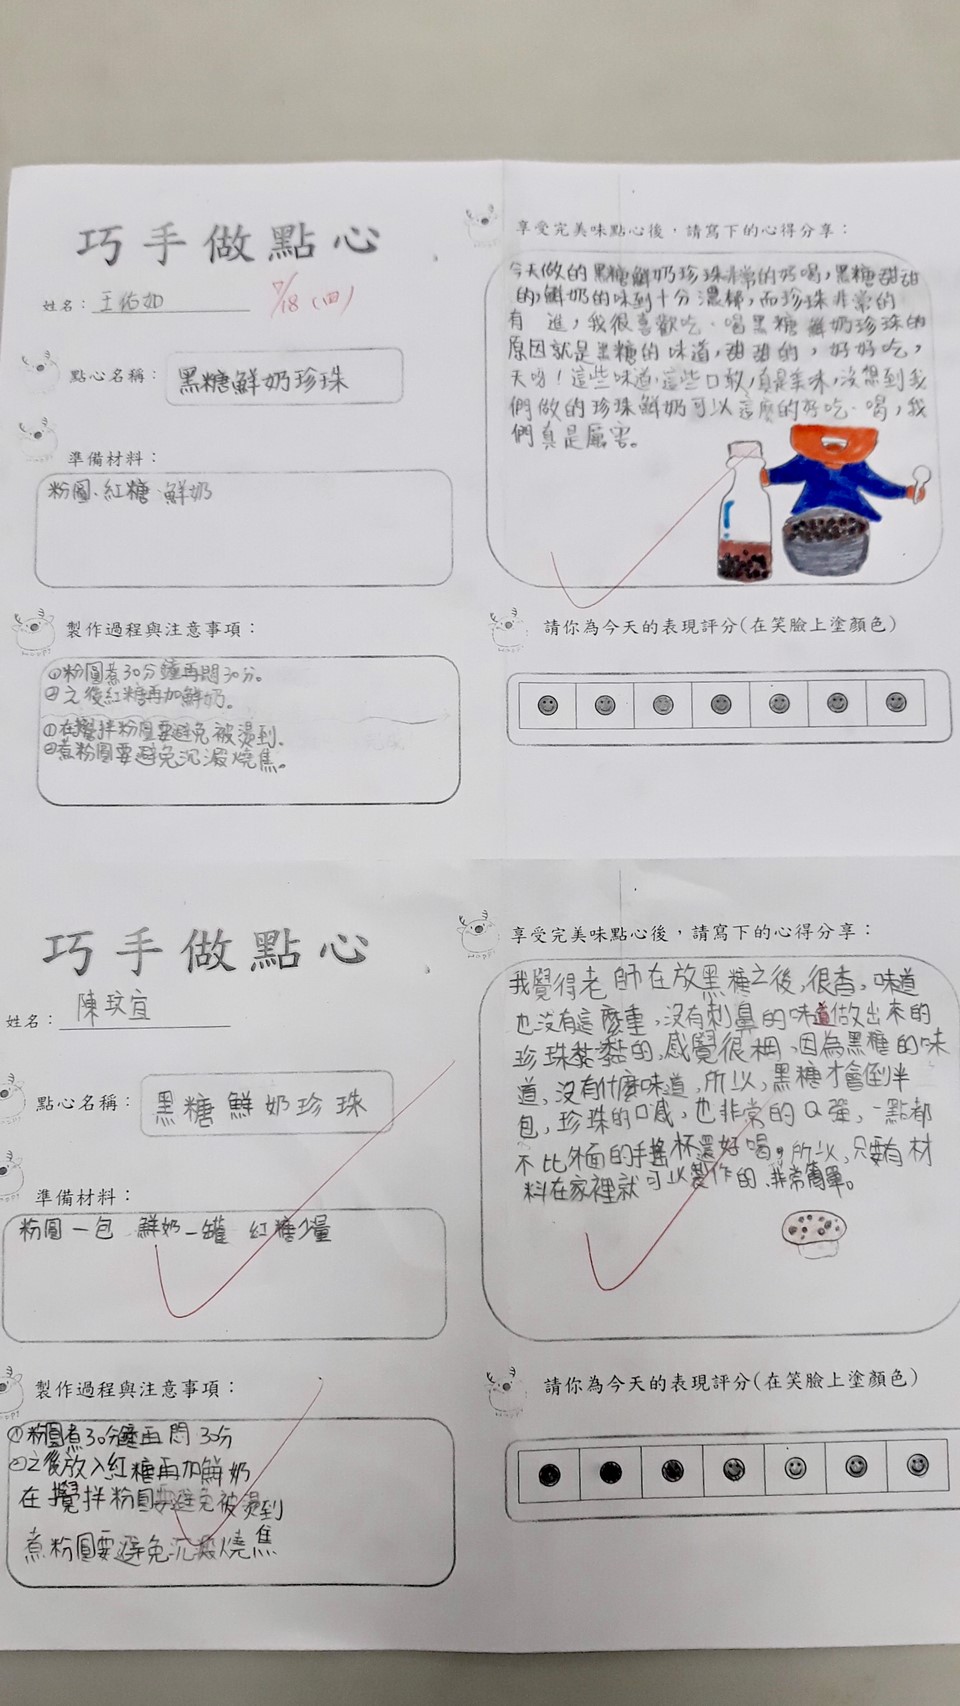 巧手做點心
姓名：王佑如
7/18(四)
點心名稱：黑糖鮮奶珍珠
準備材料：
粉圓、紅糖、鮮奶
製作過程與注意事項：
①粉圓煮30分鐘再悶30分。
②之後紅糖再加鮮奶。
①在攪拌粉圓要避免被燙到。
②煮粉圓要避免沉澱燒焦。
享受完美味點心後，請寫下的心得分享：
今天做的黑糖鮮奶珍珠非常的好喝，黑糖甜甜
的，鮮奶的味到十分濃稠，而珍珠非常的
有　進，我很喜歡吃、喝黑糖鮮奶珍珠的
原因就是黑糖的味道，甜甜的，好好吃，
天呀！這些味道，這些口敢，真是美味，沒想到我
們做的珍珠鮮奶可以這麼的好吃、喝，我
們真是厲害。
請你為今天的表現評分(在笑臉上塗顏色)
巧手做點心
姓名：陳玟宜
點心名稱：黑糖鮮奶珍珠
準備材料：
粉圓一包　鮮奶一罐　紅糖少量
製作過程與注意事項：
①粉圓煮30分鐘再悶30分
②之後放入紅糖再加鮮奶
在攪拌粉圓要避免被燙到
煮粉圓要避免沉澱燒焦
享受完美味點心後，請寫下的心得分享：
我覺得老師在放黑糖之後，很香，味道
也沒有這麼重，沒有刺鼻的味道做出來的
珍珠黏黏的，感覺很稠，因為黑糖的味
道，沒有什麼味道，所以，黑糖才會倒半
包，珍珠的口感，也非常的Q彈，一點都
不比外面的手搖杯還好喝。所以，只要有材
料在家裡就可以製作的，非常簡單。
請你為今天的表現評分(在笑臉上塗顏色)